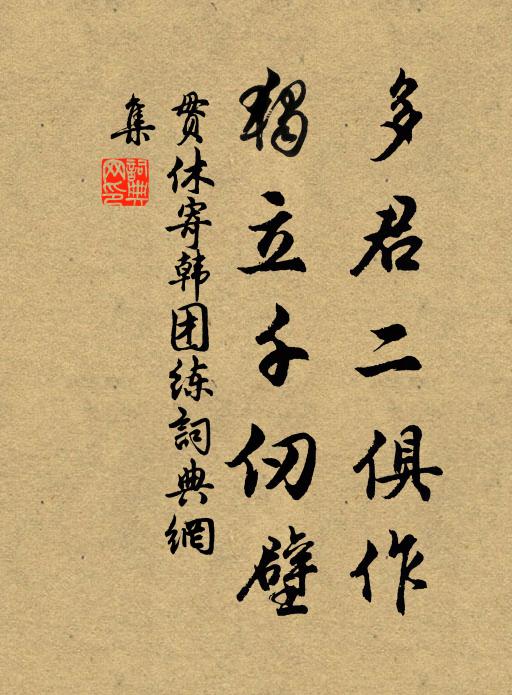 多君二俱作
獨立千仞壁
贯休寄韩团练詞典網
集
詞典网印